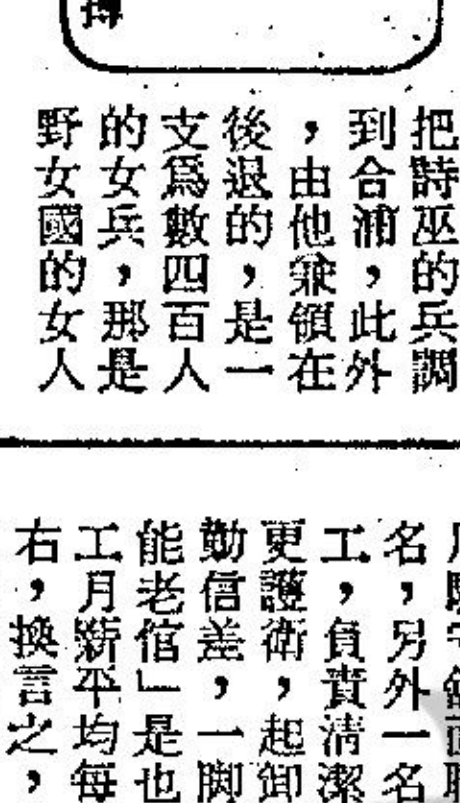 搏
把詩巫的兵調
到合浦，此外
，由他兼領在
後退的，是一
支爲數四百人
的女兵，那是
野女國的女人
名，另外一名
工，負責清潔
更護衛，起卸
勤信差，一脚
能老倌」是也
工月薪平均每
右，換言之，